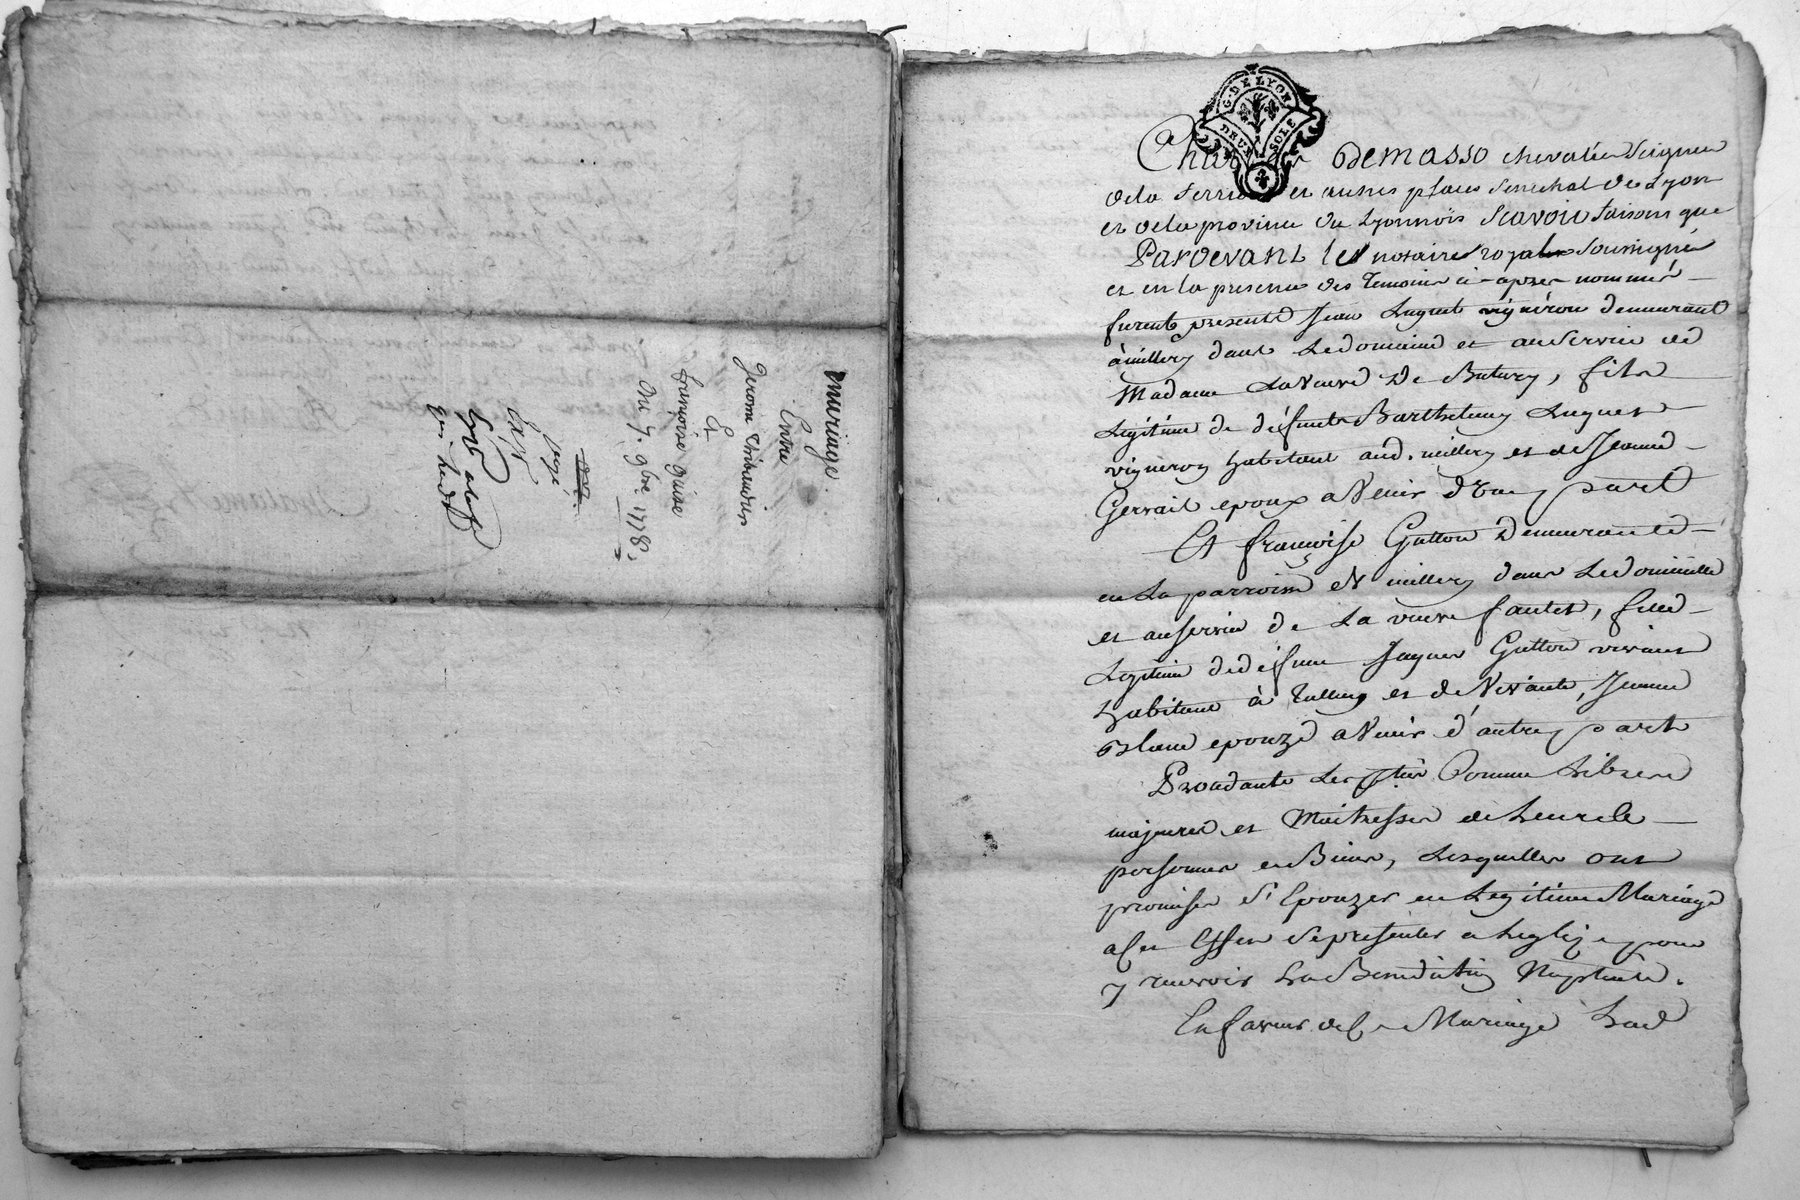 mariage.
Entre
Jerome Thibaudier
Et
françoise guise
Du 7. 9bre 1778.
Jugé
Ex.r
qui Led.
G. DE LYON
DEUX SOLS
Charles Demasso chevalier Seigneur
dela ferriere et autres places Senechal de Lyon
et dela province du Lyonnois Scavoir faisons que
Pardevant les notaires royalx soussignés
et en la presence des temoins ci-après nommés
furent presents Jean Luquet vigneron demeurant
à millery dans Ledomaine et auservice de
Madame Laveuve De Butery, fils
Legitime de deffunts Barthelemy Luquet
vigneron habitant aud. millery et de Jeanne
Gervait epoux avenir d'une part
Et françoise Gutton Demeurante
en La parroisse de millery dans Ledomicille
et auservice de La veuve fautet, fille
Legitime dedefunt Jaques Gutton vivant
habitant à Tullery et de vivante, Jeanne
Blanc epouze avenir d'autre part
Procedants Lesp.ties Comme Libres
majeures et Maitresses de Leurs
personnes et Biens, Lesquelles ont
promises S'Epouzer en Legitime Mariage
a Cet Effet Sepresenter a Leglize pour
y recevoir La Benediction Nuptialle.
En faveur de Ce Mariage Lad